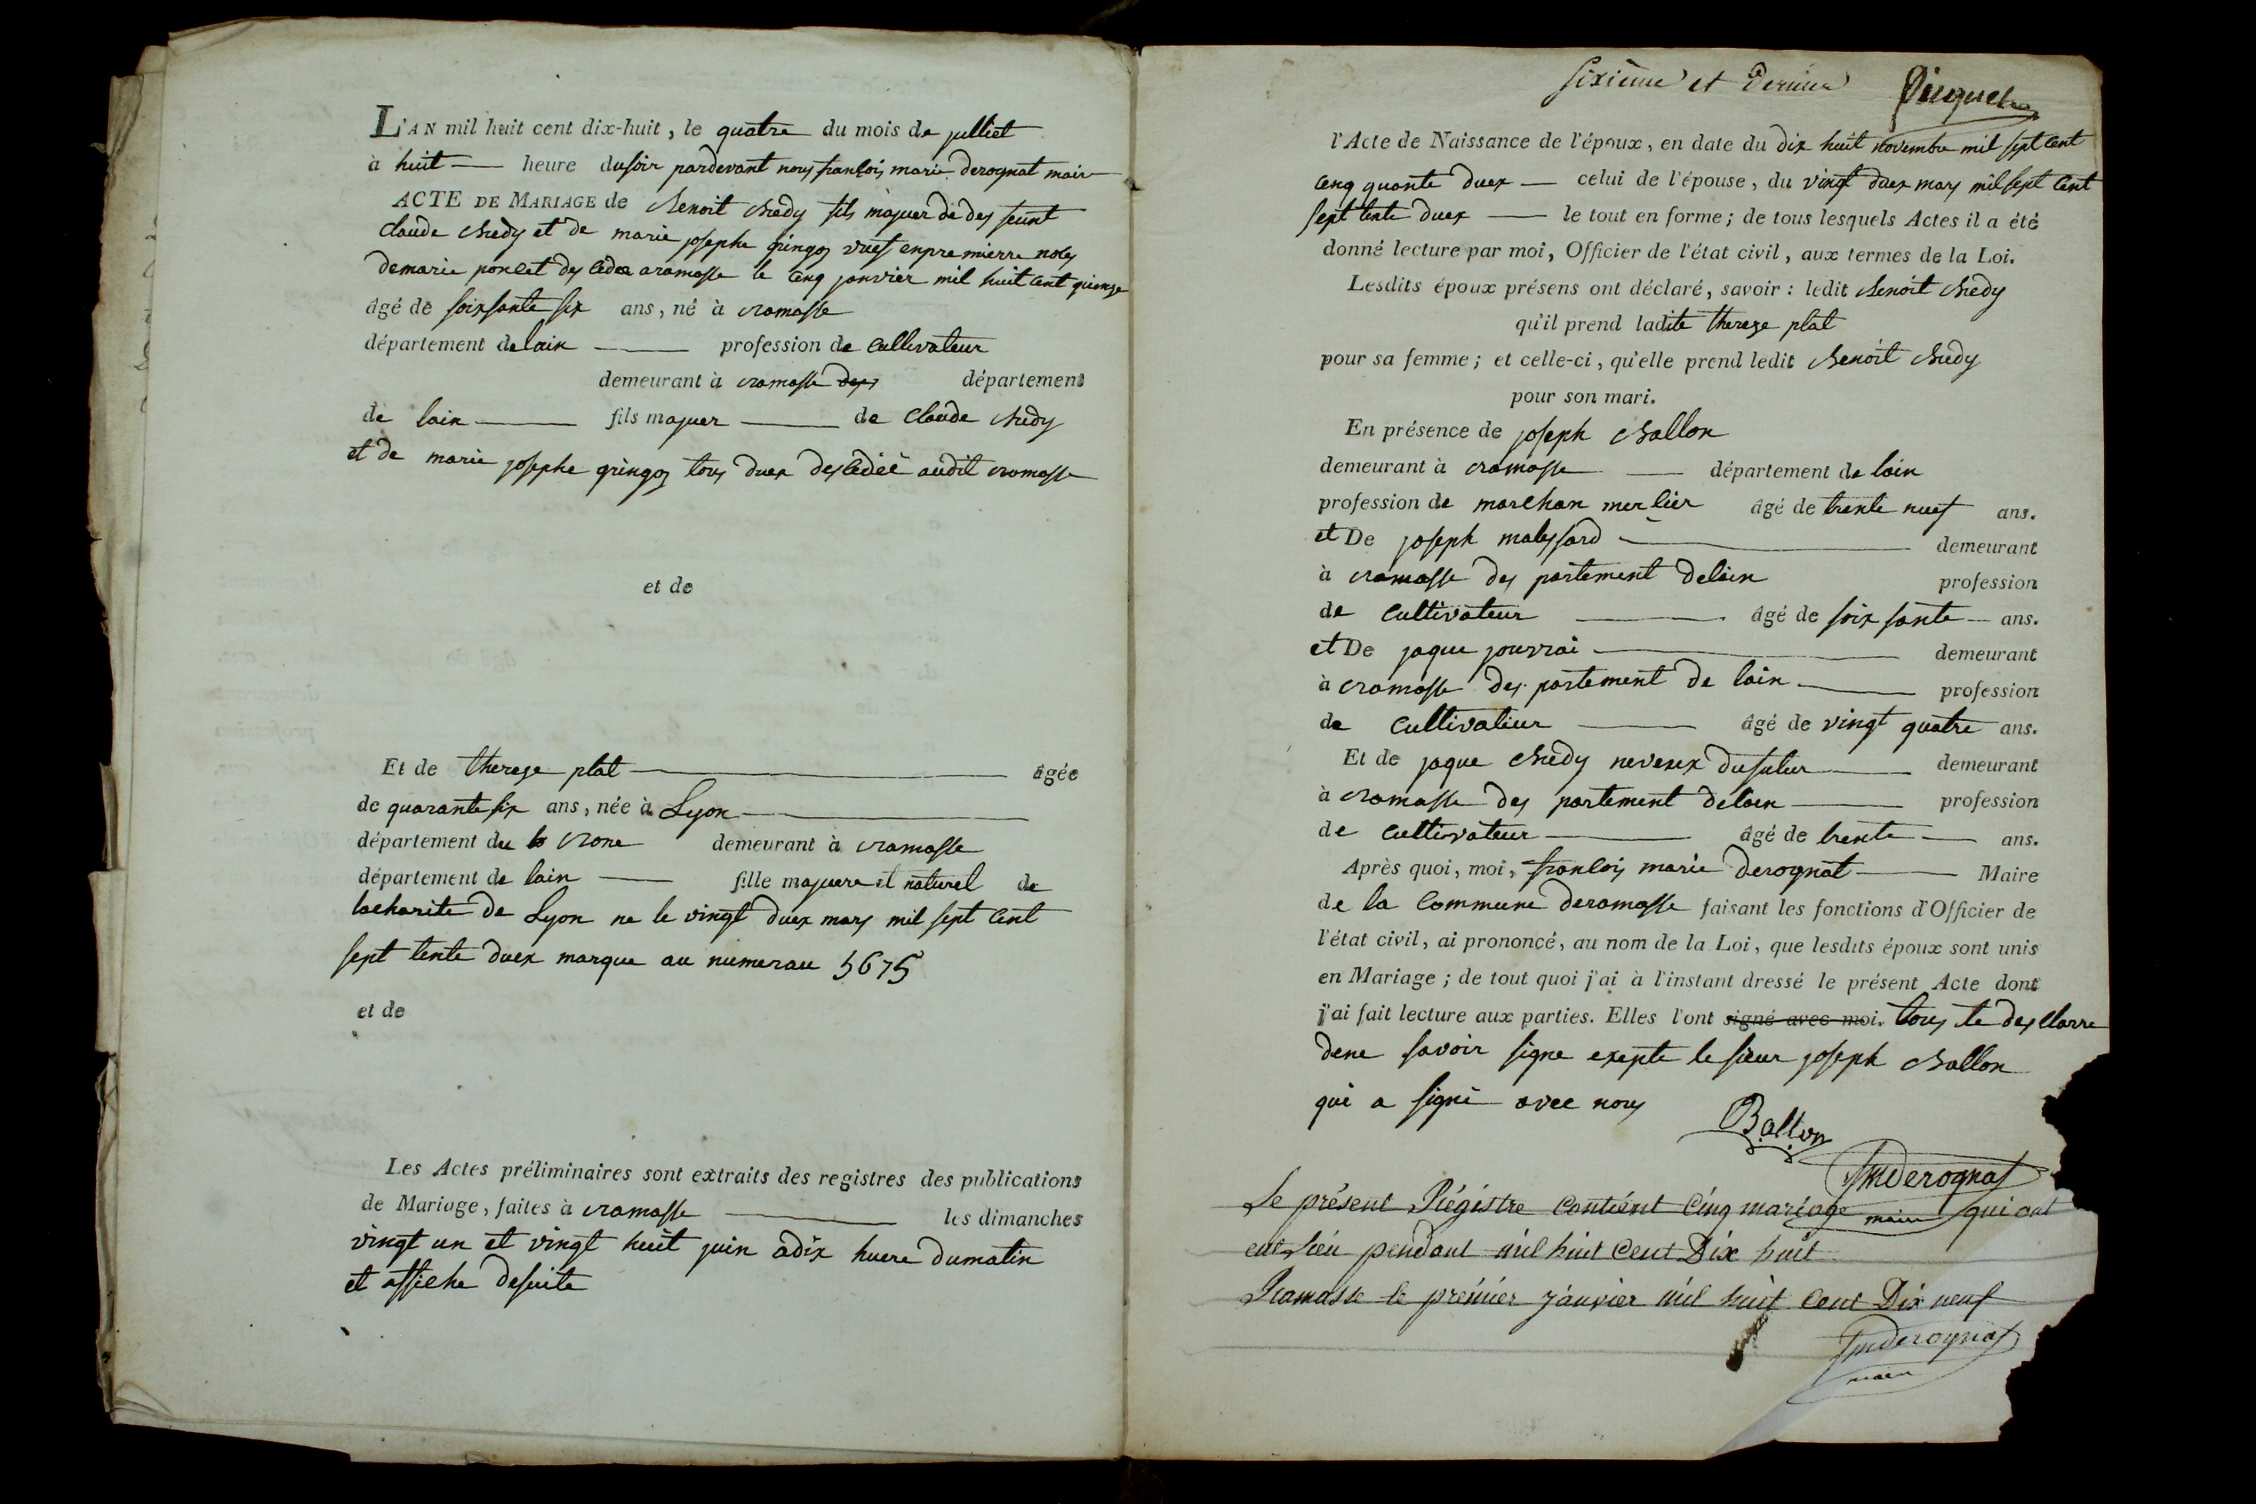 L'AN mil huit cent dix-huit, le quatre du mois de julliet
à huit — heure dusoir pardevant nous francois marie derognat mair
ACTE DE MARIAGE de Benoit Buedy fils majuer de des feunt
Claude Buedy et de marie josephe gringoz vuef enpre mierre noces
demarie poncet des cedee aramasse le cenq janvier mil huit cent quienze
âgé de soixsante six ans, né à ramasse
département de lain — profession de cultivateur
demeurant à ramasse département
de lain — fils majuer — de Claude Buedy
et de marie josephe gringoz tous duex des cedéé audit ramasse
et de
Et de thereze plat — âgée
de quarante six ans, née à Lyon —
département du rone demeurant à ramasse
département de lain — fille majuere et naturel de
lacharite de Lyon ne le vingt duex mars mil sept cent
sept tente duex marque au numerau 5675
et de
Les Actes préliminaires sont extraits des registres des publications
de Mariage, faites à ramasse — les dimanches
vingt un et vingt huit juin a dix huere dumatin
et affiche desuite
sixième et dernier
l'Acte de Naissance de l'époux, en date du dix huit novembre mil sept cent
cenq quante duex — celui de l'épouse, du vingt duex mars mil sept cent
sept tente duex — le tout en forme; de tous lesquels Actes il a été
donné lecture par moi, Officier de l'état civil, aux termes de la Loi.
Lesdits époux présens ont déclaré, savoir : ledit Benoit Buedy
qu'il prend ladite thereze plat
pour sa femme; et celle-ci, qu'elle prend ledit Benoit Buedy
pour son mari.
En présence de joseph Ballon
demeurant à ramasse — département de lain
profession de marchan mercier âgé de trente nuef ans.
et De joseph malessard — demeurant
à ramasse des partement delain profession
de cultivateur — âgé de soix sante — ans.
et De jaque jouvrai — demeurant
à ramasse des partement de lain — profession
de cultivatieur — âgé de vingt quatre ans.
Et de jaque Buedy nevesex dufutur — demeurant
à ramasse des partement delain — profession
de cultivateur — âgé de trente — ans.
Après quoi, moi, francois marie derognat — Maire
de la Commune deramasse faisant les fonctions d'Officier de
l'état civil, ai prononcé, au nom de la Loi, que lesdits époux sont unis
en Mariage; de tout quoi j'ai à l'instant dressé le présent Acte dont
j'ai fait lecture aux parties. Elles l'ont signé avec moi. tous te des clarre
dene savoir signe exepte le sieur joseph Ballon
qui a signé avec nous
Ballon
fmderognat
maire
Le présent Régistre contient cinq mariage qui ont
eut lieu pendant mil huit cent Dix huit
Ramasse le prémier janvier mil huit cent Dix neuf
fmderognat
maire